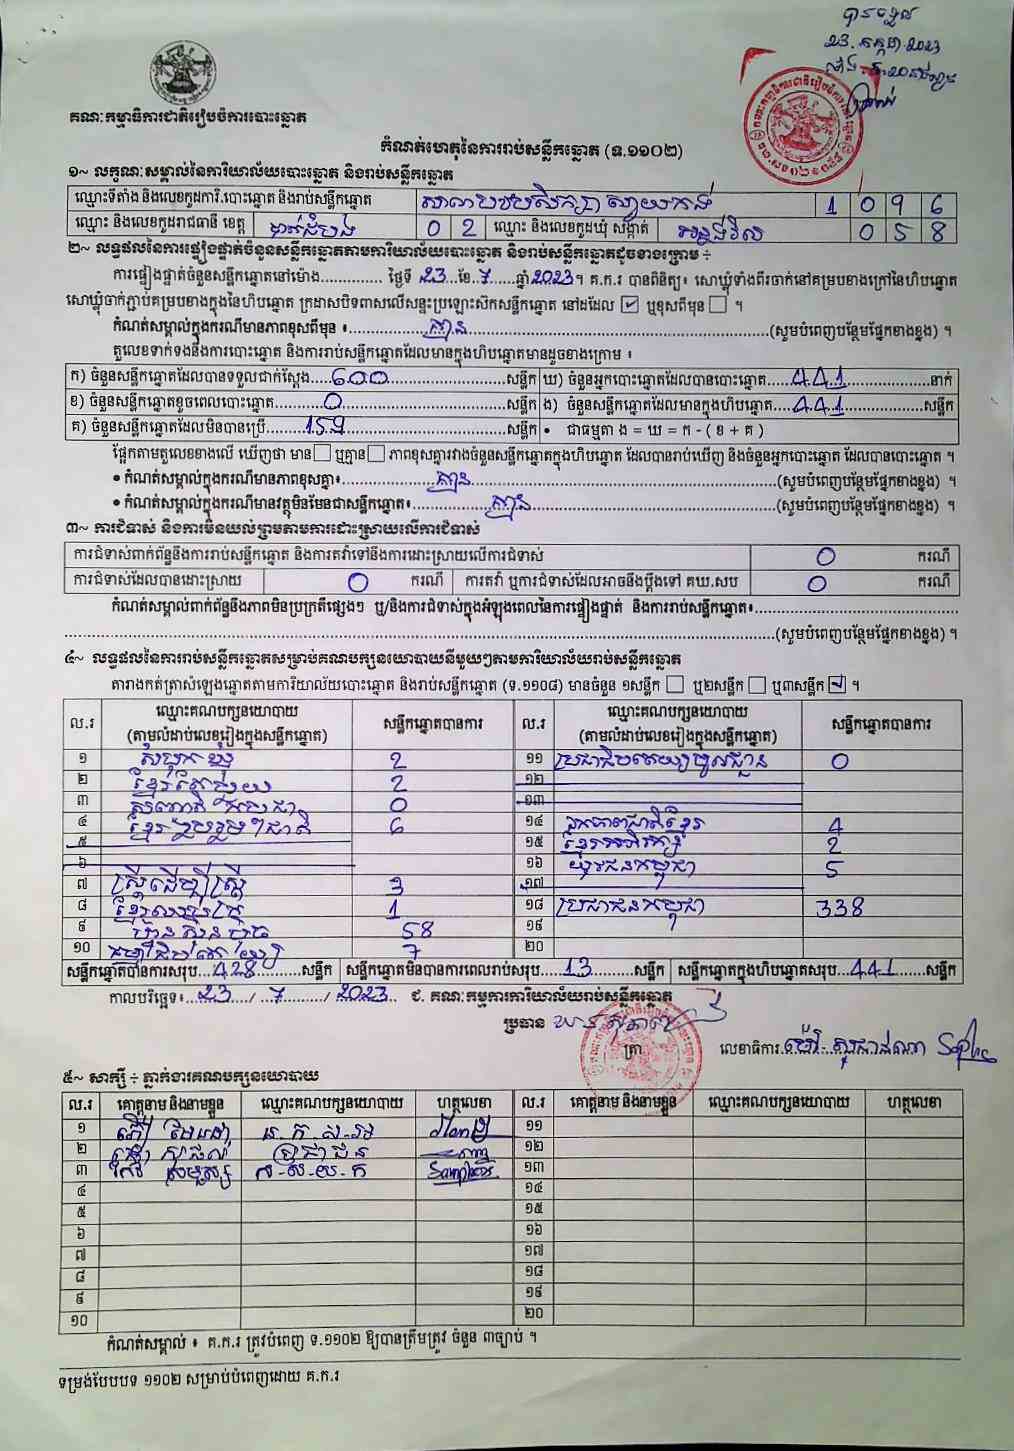 បានចូល
23. កក្កដា 2023
គណៈកម្មាធិការជាតិរៀបចំការបោះឆ្នោត
កំណត់ហេតុនៃការរាប់សន្លឹកឆ្នោត (ទ.១១០២)
១~ លក្ខណៈសម្គាល់នៃការិយាល័យបោះឆ្នោត និងរាប់សន្លឹកឆ្នោត
ឈ្មោះទីតាំង និងលេខកូដការិ.បោះឆ្នោត និងរាប់សន្លឹកឆ្នោត សាលាបឋមសិក្សាស្វាយកង់ 1 0 9 6
ឈ្មោះ និងលេខកូដរាជធានី ខេត្ត បាត់ដំបង 0 2 ឈ្មោះ និងលេខកូដឃុំ សង្កាត់ អន្លង់វិល 0 5 8
២~ លទ្ធផលនៃការផ្ទៀងផ្ទាត់ចំនួនសន្លឹកឆ្នោតតាមការិយាល័យបោះឆ្នោត និងរាប់សន្លឹកឆ្នោតដូចខាងក្រោម ÷
ការផ្ទៀងផ្ទាត់ចំនួនសន្លឹកឆ្នោតនៅម៉ោង.............. ថ្ងៃទី 23 ខែ 7 ឆ្នាំ 2023 ។ គ.ក.រ បានពិនិត្យ៖ សោឃ្លុំទាំងពីរចាក់នៅគម្របខាងក្រៅនៃហិបឆ្នោត
សោឃ្លុំចាក់ភ្ជាប់គម្របខាងក្នុងនៃហិបឆ្នោត ក្រដាសបិទពាសលើសន្ទះប្រឡោះស៊កសន្លឹកឆ្នោត នៅដដែល ☑ ឬខុសពីមុន ☐ ។
កំណត់សម្គាល់ក្នុងករណីមានភាពខុសពីមុន ៖ គ្មាន (សូមបំពេញបន្ថែមផ្នែកខាងខ្នង) ។
តួលេខទាក់ទងនឹងការបោះឆ្នោត និងការរាប់សន្លឹកឆ្នោតដែលមានក្នុងហិបឆ្នោតមានដូចខាងក្រោម ៖
ក) ចំនួនសន្លឹកឆ្នោតដែលបានទទួលជាក់ស្តែង 600 សន្លឹក ឃ) ចំនួនអ្នកបោះឆ្នោតដែលបានបោះឆ្នោត 441 នាក់
ខ) ចំនួនសន្លឹកឆ្នោតខូចពេលបោះឆ្នោត 0 សន្លឹក ង) ចំនួនសន្លឹកឆ្នោតដែលមានក្នុងហិបឆ្នោត 441 សន្លឹក
គ) ចំនួនសន្លឹកឆ្នោតដែលមិនបានប្រើ 159 សន្លឹក • ជាធម្មតា ង = ឃ = ក - ( ខ + គ )
ផ្អែកតាមតួលេខខាងលើ ឃើញថា មាន ☐ ឬគ្មាន ☐ ភាពខុសគ្នារវាងចំនួនសន្លឹកឆ្នោតក្នុងហិបឆ្នោត ដែលបានរាប់ឃើញ និងចំនួនអ្នកបោះឆ្នោត ដែលបានបោះឆ្នោត ។
• កំណត់សម្គាល់ក្នុងករណីមានភាពខុសគ្នា៖ គ្មាន (សូមបំពេញបន្ថែមផ្នែកខាងខ្នង) ។
• កំណត់សម្គាល់ក្នុងករណីមានវត្ថុមិនមែនជាសន្លឹកឆ្នោត៖ គ្មាន (សូមបំពេញបន្ថែមផ្នែកខាងខ្នង) ។
៣~ ការជំទាស់ និងការមិនយល់ព្រមតាមការដោះស្រាយលើការជំទាស់
ការជំទាស់ពាក់ព័ន្ធនឹងការរាប់សន្លឹកឆ្នោត និងការតវ៉ាទៅនឹងការដោះស្រាយលើការជំទាស់ 0 ករណី
ការជំទាស់ដែលបានដោះស្រាយ 0 ករណី ការតវ៉ា ឬការជំទាស់ដែលអាចនឹងប្តឹងទៅ គឃ.សប 0 ករណី
កំណត់សម្គាល់ពាក់ព័ន្ធនឹងភាពមិនប្រក្រតីផ្សេងៗ ឬ/និងការជំទាស់ក្នុងអំឡុងពេលនៃការផ្ទៀងផ្ទាត់ និងការរាប់សន្លឹកឆ្នោត៖
(សូមបំពេញបន្ថែមផ្នែកខាងខ្នង) ។
៤~ លទ្ធផលនៃការរាប់សន្លឹកឆ្នោតសម្រាប់គណបក្សនយោបាយនីមួយៗតាមការិយាល័យរាប់សន្លឹកឆ្នោត
តារាងកត់ត្រាសំឡេងឆ្នោតតាមការិយាល័យបោះឆ្នោត និងរាប់សន្លឹកឆ្នោត (ទ.១១០៨) មានចំនួន ១សន្លឹក ☐ ឬ២សន្លឹក ☐ ឬ៣សន្លឹក ☑ ។
ល.រ ឈ្មោះគណបក្សនយោបាយ (តាមលំដាប់លេខរៀងក្នុងសន្លឹកឆ្នោត) សន្លឹកឆ្នោតបានការ ល.រ ឈ្មោះគណបក្សនយោបាយ (តាមលំដាប់លេខរៀងក្នុងសន្លឹកឆ្នោត) សន្លឹកឆ្នោតបានការ
១ សំបុកឃ្មុំ 2 ១១ ប្រជាធិបតេយ្យមូលដ្ឋាន 0
២ ខ្មែរតែមួយ 2 ១២
៣ 0 ១៣
៤ ខ្មែររួបរួមជាតិ 6 ១៤ ឯកភាពជាតិខ្មែរ 4
៥ ១៥ ខ្មែរអភិរក្ស 2
៦ ១៦ យុវជនកម្ពុជា 5
៧ ស្ត្រីដើម្បីស្ត្រី 3 ១៧
៨ 1 ១៨ ប្រជាជនកម្ពុជា 338
៩ ហ្វ៊ុនស៊ិនប៉ិច 58 ១៩
១០ 7 ២០
សន្លឹកឆ្នោតបានការសរុប 428 សន្លឹក សន្លឹកឆ្នោតមិនបានការពេលរាប់សរុប 13 សន្លឹក សន្លឹកឆ្នោតក្នុងហិបឆ្នោតសរុប 441 សន្លឹក
កាលបរិច្ឆេទ៖ 23 / 7 / 2023 ជ. គណៈកម្មការការិយាល័យរាប់សន្លឹកឆ្នោត
ប្រធាន
ត្រា លេខាធិការ
៥~ សាក្សី ÷ ភ្នាក់ងារគណបក្សនយោបាយ
ល.រ គោត្តនាម និងនាមខ្លួន ឈ្មោះគណបក្សនយោបាយ ហត្ថលេខា ល.រ គោត្តនាម និងនាមខ្លួន ឈ្មោះគណបក្សនយោបាយ ហត្ថលេខា
១ ១១
២ ប្រជាជន ១២
៣ ១៣
៤ ១៤
៥ ១៥
៦ ១៦
៧ ១៧
៨ ១៨
៩ ១៩
១០ ២០
កំណត់សម្គាល់ ៖ គ.ក.រ ត្រូវបំពេញ ទ.១១០២ ឱ្យបានត្រឹមត្រូវ ចំនួន ៣ច្បាប់ ។
ទម្រង់បែបបទ ១១០២ សម្រាប់បំពេញដោយ គ.ក.រ